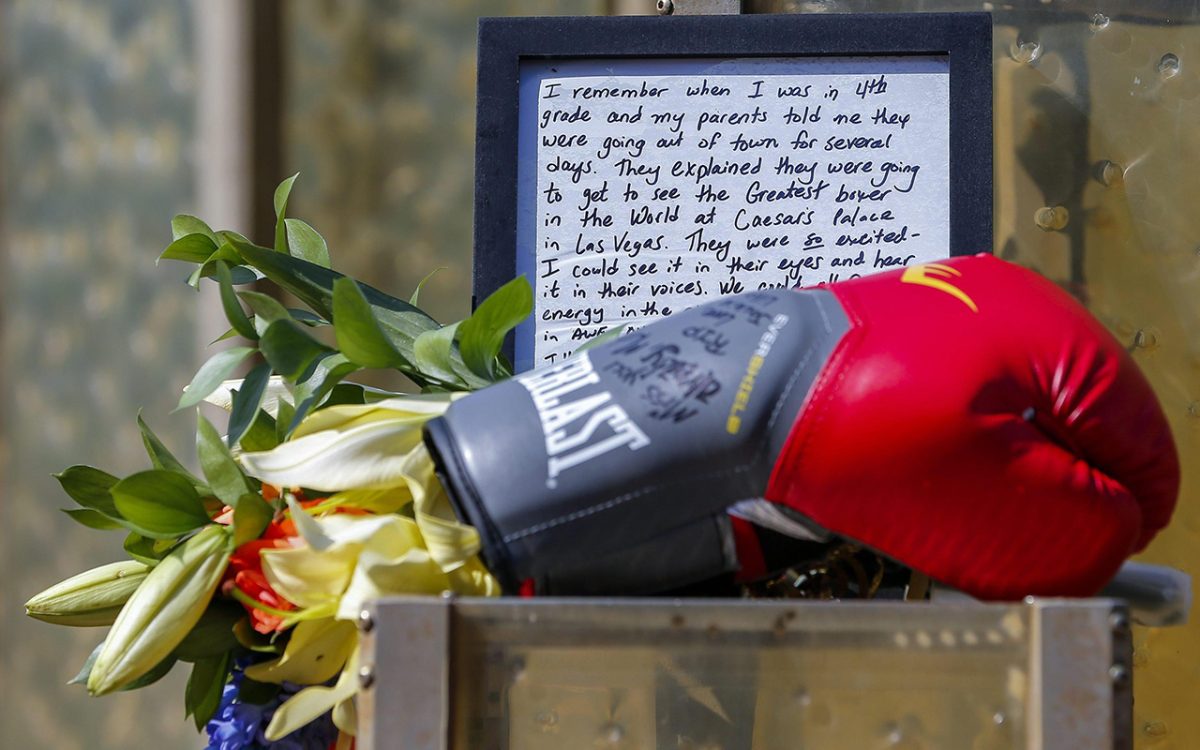 I remember when I was in 4th
grade and my parents told me they
were going out of town for several
days. They explained they were going
to get to see the Greatest boxer
in the World at Caesar's Palace
in Las Vegas. They were so excited-
I could see it in their eyes and hear
it in their voices. We
energy in the
in AWE
EVERSHIELD
RLAST
RIP